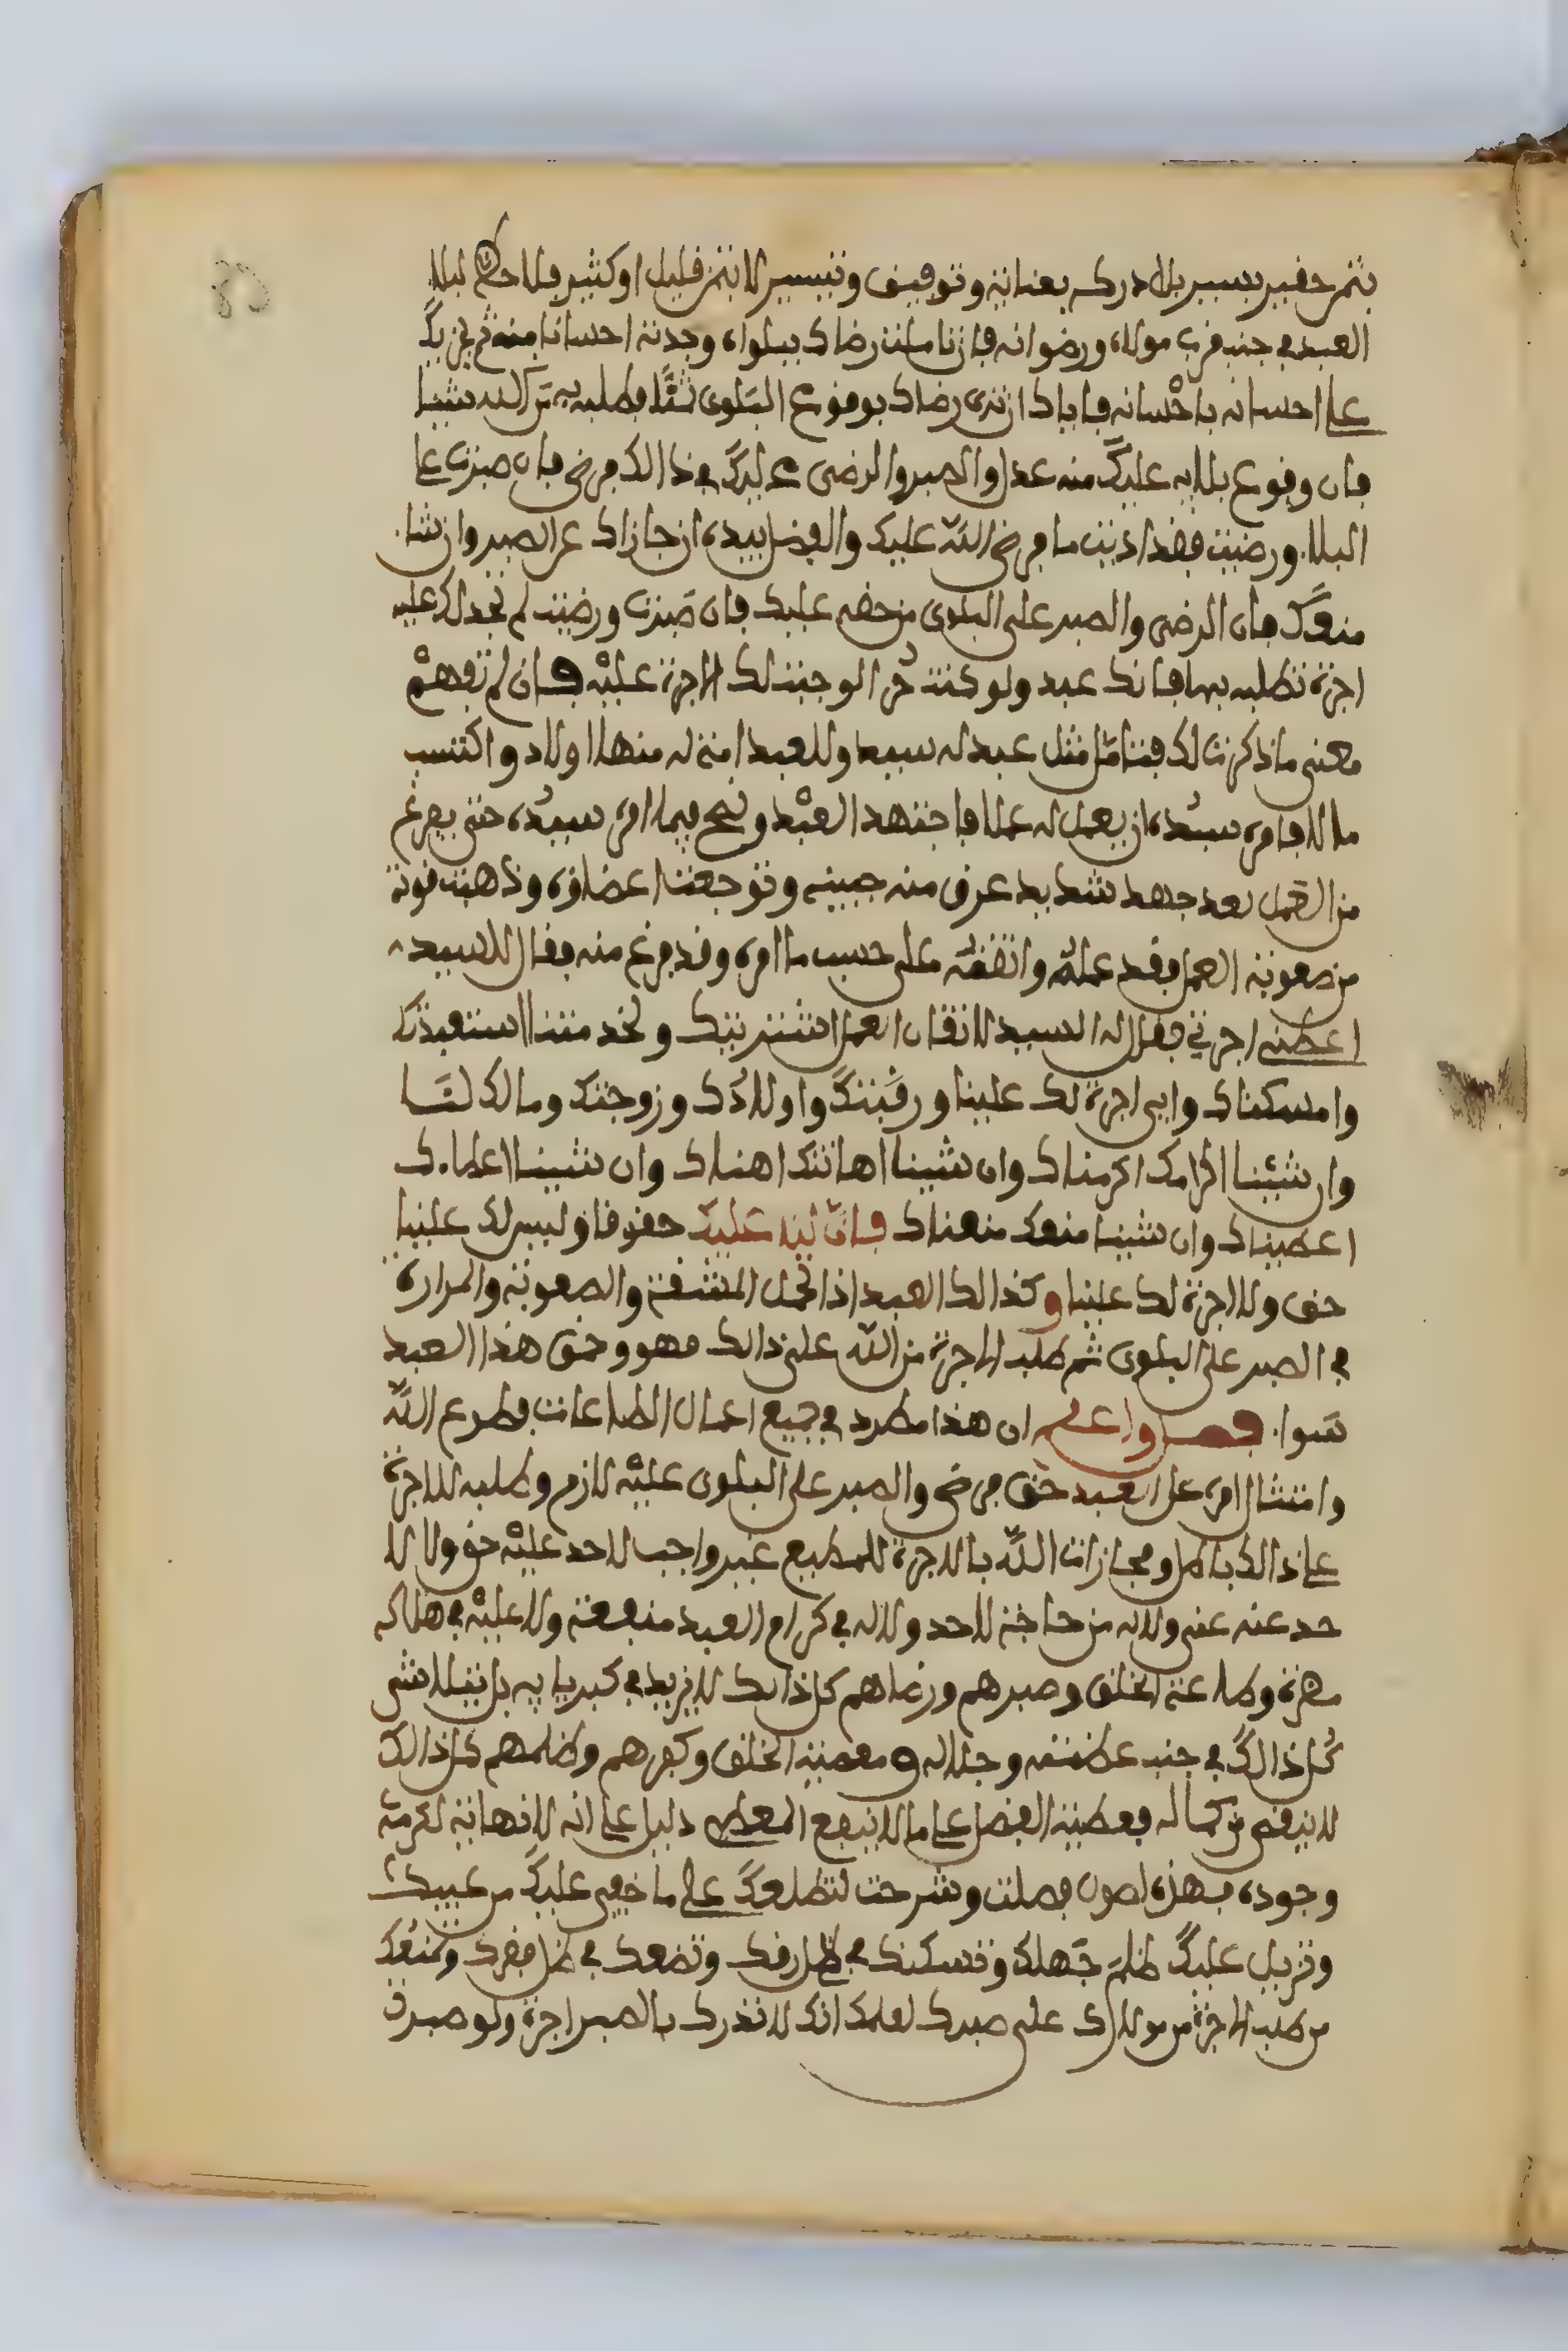 بثمن حقير يسير بل ادركه بعناية وتوفيق وتيسير لا بثمن قليل او كثير فلا حكم لبلاء
العبد في جنب قرب مولاه ورضوانه فان تاملت رضاك ببلواه وجدته احسانا منه ثم يجزيك
على احسانه باحسانه فاياك ان ترى رضاك بوقوع البلوى ثمنا فطلب به من الله شيئا
فان وقوع بلايه عليك منه عدل والصبر والرضى عليك في ذالك فرض فان صبرت على
البلاء ورضيت فقد اديت ما فرض الله عليك والفضل بيده ان جازاك عن الصبر وان شاء
منعك فان الرضى والصبر على البلوى من حقه عليك فان صبرت ورضيت لم تجد لك عليه
اجرة تطلبه بها فانك عبد ولو كنت حرا لوجبت لك الاجرة عليه فان لم تفهم
معنى ما ذكرت لك فتامل مثل عبد له سيد وللعبد امة له منها اولاد واكتسب
مالا فامره سيده ان يعمل له عملا فاجتهد العبد ونصح فيما امره سيده حتى يفرغ
من العمل بعد جهد شديد عرق منه جبينه وتوجعت اعضاؤه وذهبت قوته
من صعوبة العمل فقد عمله واتقنه على حسب ما امره وقد فرغ منه فقال للسيد
اعطني اجرتي فقال له السيد لاتقان العمل اشتريتك ولخدمتنا استعبدك
وامسكناك واي اجرة لك علينا ورقبتك واولادك وزوجتك ومالك لنا
وان شئنا اكرامك اكرمناك وان شينا اهانتك اهناك وان شينا اعطاءك
اعطيناك وان شينا منعك منعناك فان لنا عليك حقوقا وليس لك علينا
حق ولا اجرة لك علينا وكذالك العبد اذا تحمل المشقة والصعوبة والمرارة
في الصبر على البلوى ثم طلب الاجرة من الله على ذالك فهو وحق هذا العبد
سواء فصل واعلم ان هذا مطرد في جميع اعمال الطاعات فطوع الله
وامتثال امره على العبد حق فرض والصبر على البلوى عليه لازم وطلبه للاجرة
على ذالك باطل ومجازات الله بالاجرة للمطيع غير واجب لاحد عليه حق ولا لا
حد عنه غنى ولا به من حاجة لاحد ولا له في كرام العبد منفعة ولا عليه في هلاكه
مضرة وطاعة الخلق وصبرهم ورضاهم كل ذالك لا يزيد في كبريايه بل يتلاشى
كل ذالك في جنب عظمته وجلاله ومعصية الخلق وكفرهم وظلمهم كل ذالك
لا ينقص من كماله فعطية الفضل على ما لا ينفع المعطي دليل على انه لا نهاية لكرمه
وجوده فهذه اصول فصلت وشرحت لتطلعك على ما خفي عليك من عيبك
وتزيل عليك ظلم جهلك وتسكنك في ظل رقك وتضعك في ظل فقرك وتمنعك
من طلب الاجرة من مولاك على صبرك لعلمك انك لا تدرك بالصبر اجرة ولو صبرت